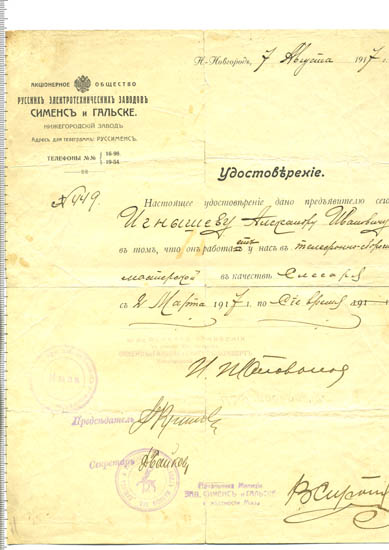 Н-Новгородъ, 7 Августа 1917 г.
АКЦИОНЕРНОЕ ОБЩЕСТВО
РУССКИХЪ ЭЛЕКТРОТЕХНИЧЕСКИХЪ ЗАВОДОВЪ
СИМЕНСЪ и ГАЛЬСКЕ.
НИЖЕГОРОДСКІЙ ЗАВОДЪ
Адресъ для телеграммъ: РУССИМЕНСЪ.
ТЕЛЕФОНЫ №№ 16-96
19-54
Удостовѣреніе.
№ 449.
Настоящее удостовѣреніе дано предъявителю сего
Игнышеву Александру Ивановичу
въ томъ, что онъ работаетъ у насъ въ телефонно-
мастерской въ качествѣ Слесаря
съ 2 Марта 1917 г. по Сіе время 191
Предсѣдатель
Секретарь
Начальника Милиціи
ЗАВ. СИМЕНСЪ и ГАЛЬСКЕ